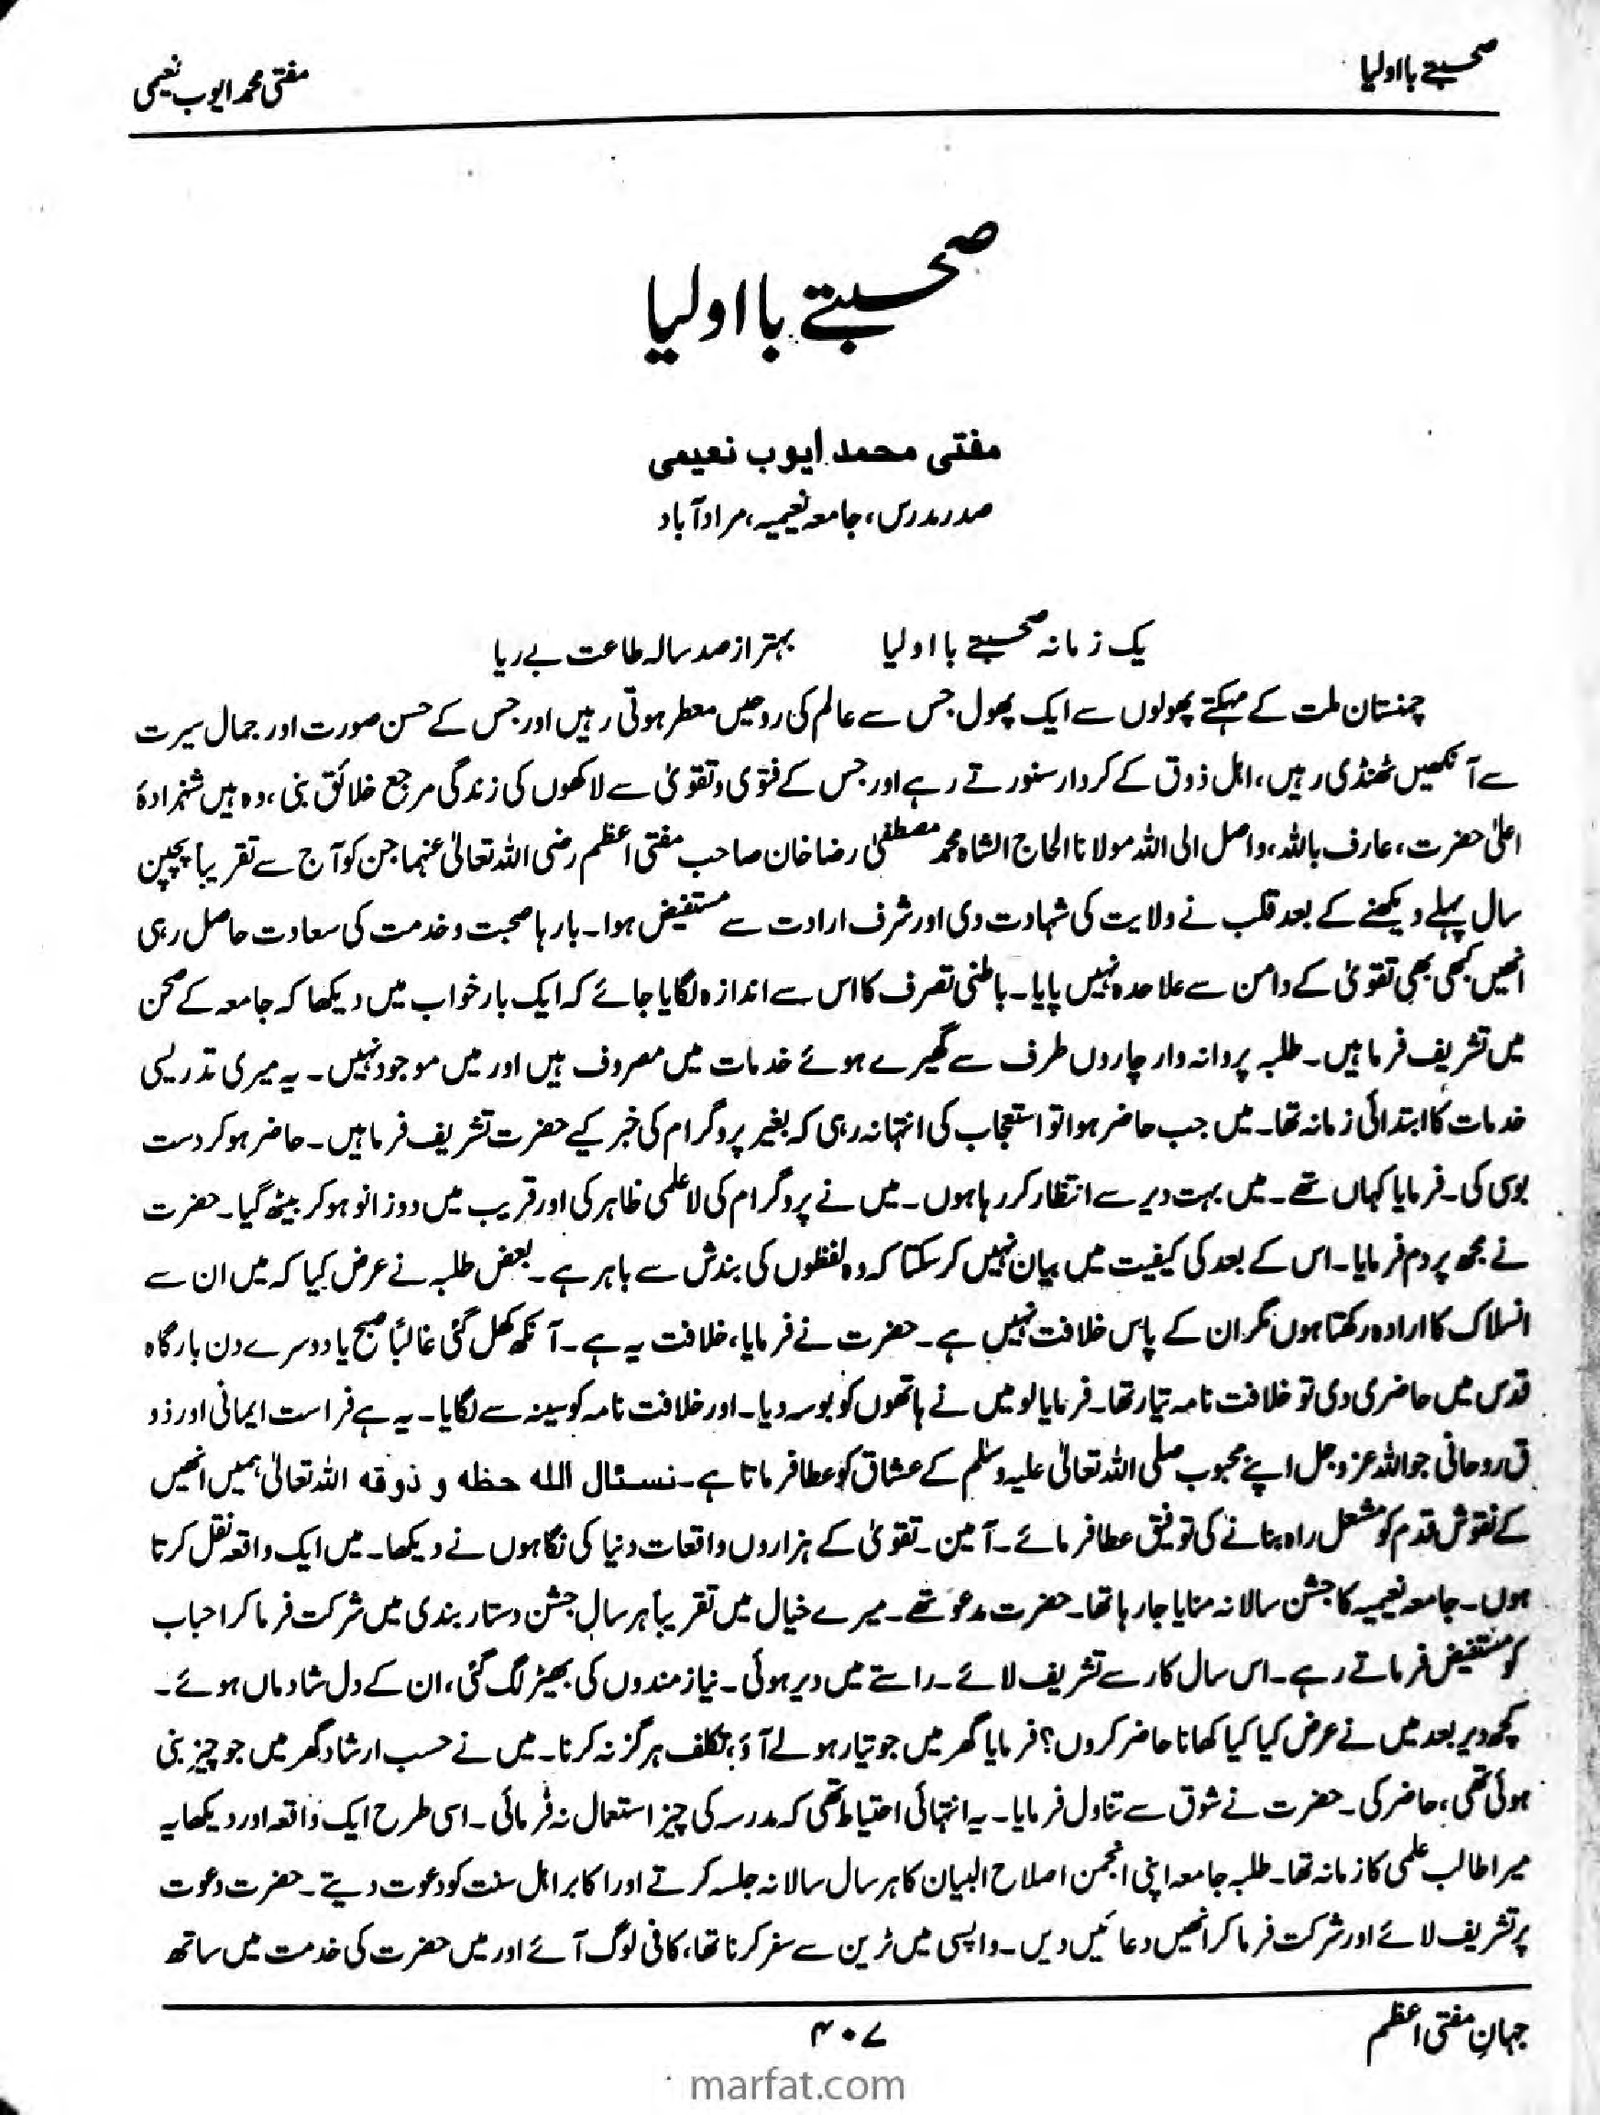 صحبتے با اولیا
مفتی محمد ایوب نعیمی
صحبتے با اولیا
مفتی محمد ایوب نعیمی
صدر مدرس، جامعہ نعیمیہ، مراد آباد
یک زمانہ صحبتے با اولیا بہتر از صد سالہ طاعت بے ریا
چمنستان ملت کے مہکتے پھولوں سے ایک پھول جس سے عالم کی روحیں معطر ہوتی رہیں اور جس کے حسن صورت اور جمال سیرت
سے آنکھیں ٹھنڈی رہیں، اہل ذوق کے کردار سنورتے رہے اور جس کے فتویٰ و تقویٰ سے لاکھوں کی زندگی مرجع خلائق بنی، وہ ہیں شہزادۂ
اعلیٰ حضرت، عارف باللہ، واصل الی اللہ مولانا الحاج الشاہ محمد مصطفیٰ رضا خان صاحب مفتی اعظم رضی اللہ تعالیٰ عنہما جن کو آج سے تقریباً پچپن
سال پہلے دیکھنے کے بعد قلب نے ولایت کی شہادت دی اور شرف ارادت سے مستفیض ہوا۔ بارہا صحبت و خدمت کی سعادت حاصل رہی
انھیں کبھی بھی تقویٰ کے دامن سے علاحدہ نہیں پایا۔ باطنی تصرف کا اس سے اندازہ لگایا جائے کہ ایک بار خواب میں دیکھا کہ جامعہ کے صحن
میں تشریف فرما ہیں۔ طلبہ پروانہ وار چاروں طرف سے گھیرے ہوئے خدمات میں مصروف ہیں اور میں موجود نہیں۔ یہ میری تدریسی
خدمات کا ابتدائی زمانہ تھا۔ میں جب حاضر ہوا تو استعجاب کی انتہا نہ رہی کہ بغیر پروگرام کی خبر کیے حضرت تشریف فرما ہیں۔ حاضر ہو کر دست
بوسی کی۔ فرمایا کہاں تھے۔ میں بہت دیر سے انتظار کر رہا ہوں۔ میں نے پروگرام کی لاعلمی ظاہر کی اور قریب میں دوزانو ہو کر بیٹھ گیا۔ حضرت
نے مجھ پر دم فرمایا۔ اس کے بعد کی کیفیت میں بیان نہیں کر سکتا کہ وہ لفظوں کی بندش سے باہر ہے۔ بعض طلبہ نے عرض کیا کہ میں ان سے
انسلاک کا ارادہ رکھتا ہوں مگر ان کے پاس خلافت نہیں ہے۔ حضرت نے فرمایا، خلافت یہ ہے۔ آنکھ کھل گئی غالباً صبح یا دوسرے دن بارگاہ
قدس میں حاضری دی تو خلافت نامہ تیار تھا۔ فرمایا لو میں نے ہاتھوں کو بوسہ دیا۔ اور خلافت نامہ کو سینہ سے لگایا۔ یہ ہے فراست ایمانی اور ذو
ق روحانی جو اللہ عزوجل اپنے محبوب صلی اللہ تعالیٰ علیہ وسلم کے عشاق کو عطا فرماتا ہے۔ نسئال اللہ حظہ و ذوقہ اللہ تعالیٰ ہمیں انھیں
کے نقوش قدم کو مشعل راہ بنانے کی توفیق عطا فرمائے۔ آمین۔ تقویٰ کے ہزاروں واقعات دنیا کی نگاہوں نے دیکھا۔ میں ایک واقعہ نقل کرتا
ہوں۔ جامعہ نعیمیہ کا جشن سالانہ منایا جا رہا تھا۔ حضرت مدعو تھے۔ میرے خیال میں تقریباً ہر سال جشن دستار بندی میں شرکت فرما کر احباب
کو مستفیض فرماتے رہے۔ اس سال کار سے تشریف لائے۔ راستے میں دیر ہوئی۔ نیاز مندوں کی بھیڑ لگ گئی، ان کے دل شادماں ہوئے۔
کچھ دیر بعد میں نے عرض کیا کیا کھانا حاضر کروں؟ فرمایا گھر میں جو تیار ہو لے آؤ، تکلف ہرگز نہ کرنا۔ میں نے حسب ارشاد گھر میں جو چیز بنی
ہوئی تھی، حاضر کی۔ حضرت نے شوق سے تناول فرمایا۔ یہ انتہائی احتیاط تھی کہ مدرسہ کی چیز استعمال نہ فرمائی۔ اسی طرح ایک واقعہ اور دیکھا یہ
میرا طالب علمی کا زمانہ تھا۔ طلبہ جامعہ اپنی انجمن اصلاح البیان کا ہر سال سالانہ جلسہ کرتے اور اکابر اہل سنت کو دعوت دیتے۔ حضرت دعوت
پر تشریف لائے اور شرکت فرما کر انھیں دعائیں دیں۔ واپسی میں ٹرین سے سفر کرنا تھا، کافی لوگ آئے اور میں حضرت کی خدمت میں ساتھ
جہانِ مفتی اعظم
۴۰۷
marfat.com